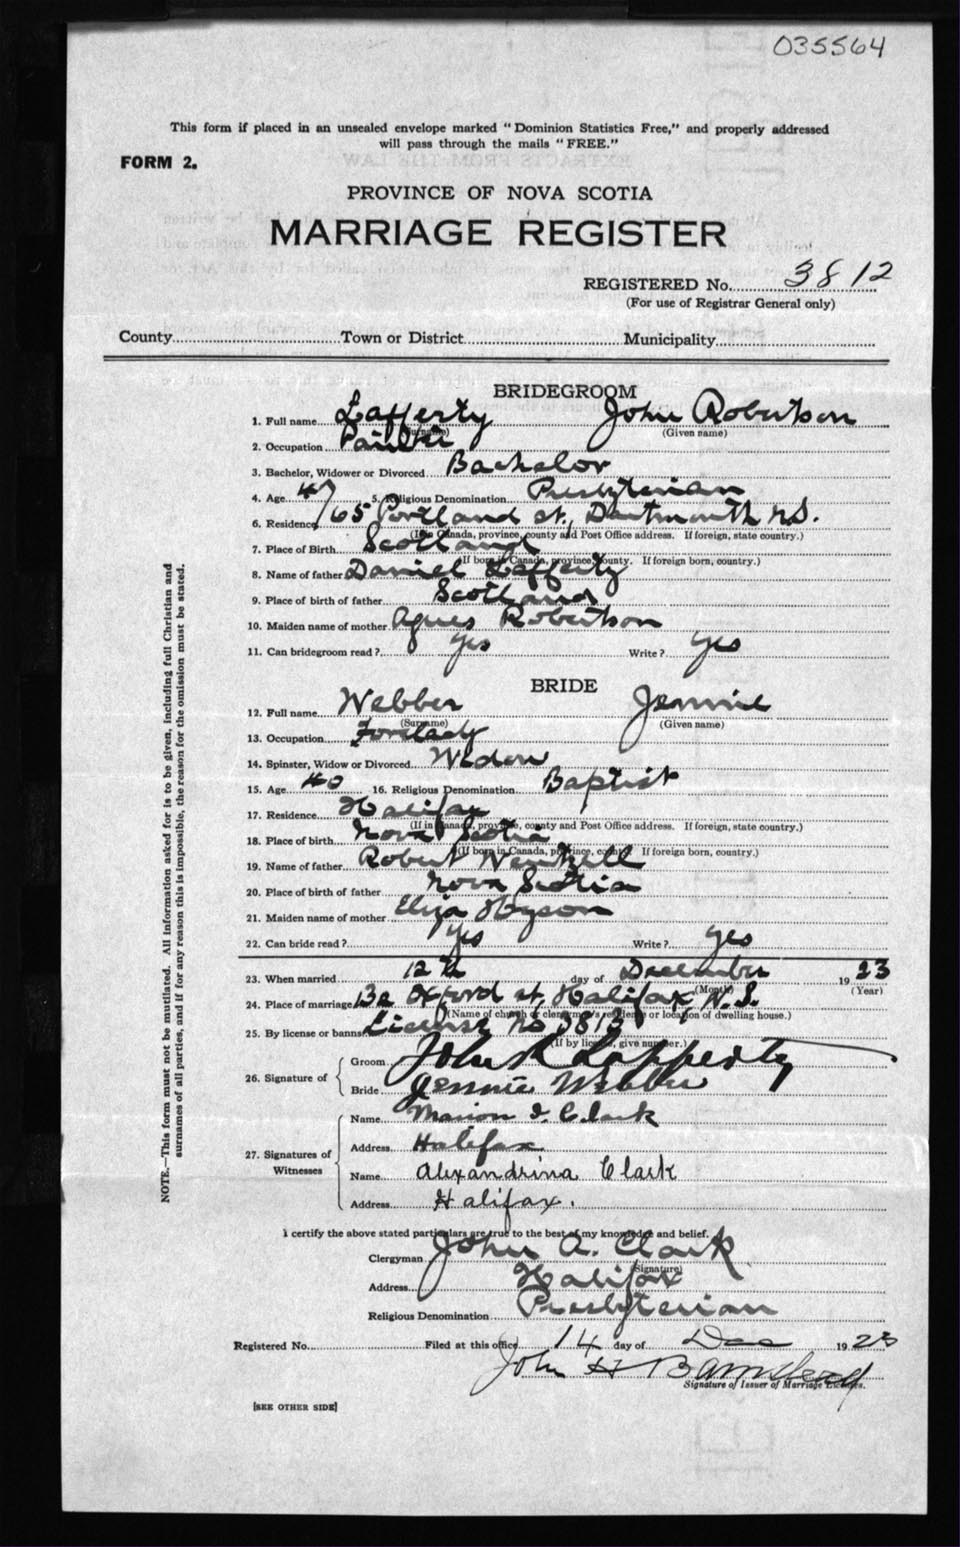 035564
This form if placed in an unsealed envelope marked "Dominion Statistics Free," and properly addressed
will pass through the mails "FREE."
FORM 2.
PROVINCE OF NOVA SCOTIA
MARRIAGE REGISTER
REGISTERED No. 3812
(For use of Registrar General only)
County Town or District Municipality
BRIDEGROOM
1. Full name Lafferty John Robertson
(Surname) (Given name)
2. Occupation Painter
3. Bachelor, Widower or Divorced Bachelor
4. Age 47 5. Religious Denomination Presbyterian
6. Residence 165 Portland st, Dartmouth N.S.
(If in Canada, province, county and Post Office address. If foreign, state country.)
7. Place of Birth Scotland
(If born in Canada, province, county. If foreign born, country.)
8. Name of father Daniel Lafferty
9. Place of birth of father Scotland
10. Maiden name of mother Agnes Robertson
11. Can bridegroom read? Yes Write? Yes
BRIDE
12. Full name Webber Jennie
(Surname) (Given name)
13. Occupation Forelady
14. Spinster, Widow or Divorced Widow
15. Age 40 16. Religious Denomination Baptist
17. Residence Halifax
(If in Canada, province, county and Post Office address. If foreign, state country.)
18. Place of birth Nova Scotia
(If born in Canada, province, county. If foreign born, country.)
19. Name of father Robert Wentzell
20. Place of birth of father Nova Scotia
21. Maiden name of mother Eliza Hyson
22. Can bride read? Yes Write? Yes
23. When married 12th day of December 1923
(Month) (Year)
24. Place of marriage Oxford st. Halifax N.S.
(Name of church or clergyman's residence or location of dwelling house.)
25. By license or banns License No 3813
(If by license, give number.)
26. Signature of
Groom John R Lafferty
Bride Jennie Webber
27. Signatures of Witnesses
Name Marion I. Clark
Address Halifax
Name Alexandrina Clark
Address Halifax.
I certify the above stated particulars are true to the best of my knowledge and belief.
Clergyman John A. Clark
(Signature)
Address Halifax
Religious Denomination Presbyterian
Registered No. Filed at this office 14 day of Dec 1923
John H
Signature of Issuer of Marriage Licenses.
[SEE OTHER SIDE]
NOTE.—This form must not be mutilated. All information asked for is to be given, including full Christian and
surnames of all parties, and if for any reason this is impossible, the reason for the omission must be stated.